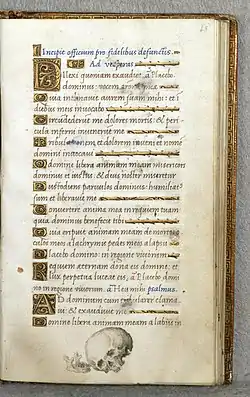 Incipit officium pro fidelibus defunctis.
Ad vesperas
Dilexi quoniam exaudiet, a Placebo
dominus: vocem
Quia inclinavit aurem suam mihi: et i
diebus meis invocabo
Circundederut me dolores mortis: & peri
cula inferni invenerut me
Tribulationem et dolorem inveni: et nome
domini invocavi
O domine libera animam meam: misericors
dominus et iustus: & deus noster miseretur
Custodiens parvulos dominus: humiliatus
sum et liberavit me
Convertere anima mea in requiem tuam
quia dominus benefecit tibi
Quia eripuit animam meam de morte:
oculos meos a lachrymis pedes meos a lapsu
Placebo domino: in regione vivorum
Requiem aeternam dona eis domine: et
lux perpetua luceat eis, a Placebo domi
no in regione vivorum. a Heu mihi psalmus.
AD dominum cum tribularer clama
vi: & exaudivit me
Domine libera animam meam a labiis in